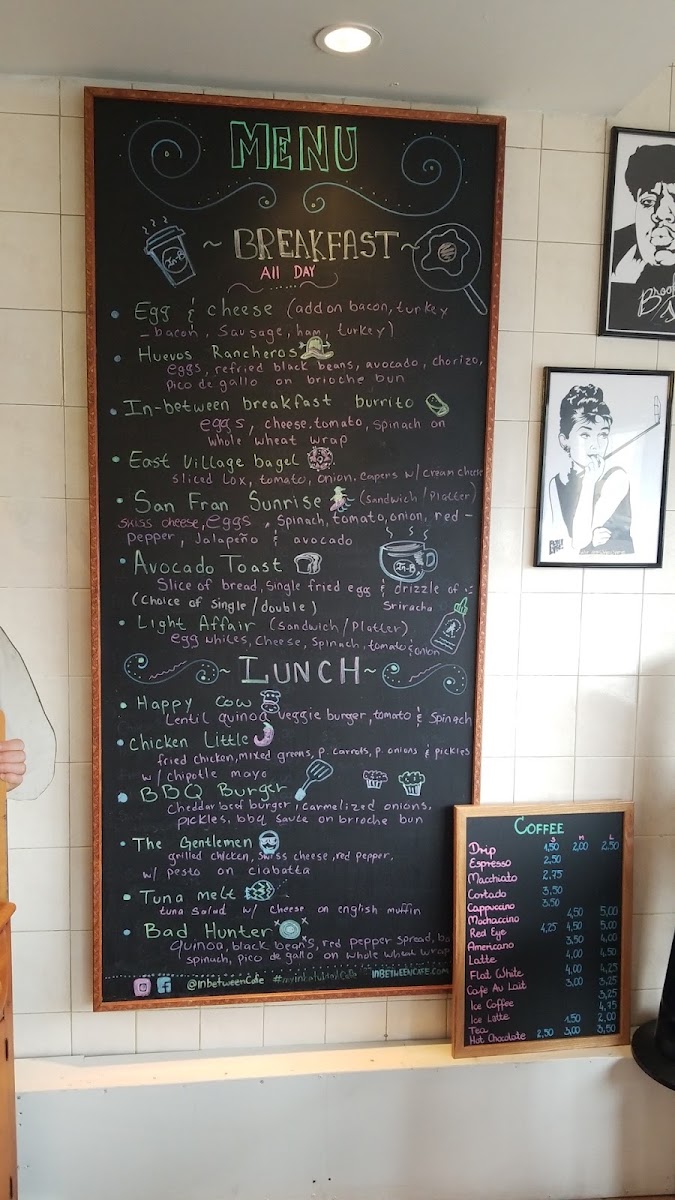 MENU
~ BREAKFAST ~
All DAY
In-B
• Egg & cheese (add on bacon, turkey
- bacon, Sausage, ham, turkey)
• Huevos Rancheros
eggs, refried black beans, avocado, chorizo,
Pico de gallo on brioche bun
• In-between breakfast burrito
eggs, cheese.tomato, spinach on
whole wheat wrap
• East Village bagel
sliced lox, tomato, onion. capers w/ cream cheese
• San Fran Sunrise (sandwich / Platter)
swiss cheese, eggs, spinach, tomato, onion, red -
pepper, Jalapeño & avocado
• Avocado Toast
In-B
Slice of bread, single fried egg & drizzle of
(choice of single / double) Sriracha
• Light Affair (sandwich / Platter)
egg whites, cheese, spinach, tomato & onion
~ LUNCH ~
• Happy Cow
Lentil quinoa veggie burger, tomato & Spinach
• Chicken Little
fried chicken, mixed greens, p. carrots, p. onions & pickles
w/ chipotle mayo
• BBQ Burger
Cheddar beef burger, carmelized onions,
pickles, bbq sauce on brioche bun
• The Gentlemen
grilled chicken, swiss cheese, red pepper,
w/ pesto on ciabatta
• Tuna melt
tuna salad w/ cheese on english muffin
• Bad Hunter
quinoa, black beans, red pepper spread,
spinach, pico de gallo on whole wheat wrap
@inbetweencafe INBETWEENCAFE.COM
COFFEE
S M L
Drip 1,50 2,00 2,50
Espresso 2,50
Macchiato 2.75
Cortado 3.50
Cappucano 3.50
Mochaccino 4,50 5,00
Red Eye 4,25 4,50 5,00
Americano 3,50 4,00
Latte 4,00 4,50
Flat White 4,00 4,25
Cafe Au Lait 3,00 3,25
Ice Coffee 3,25
Ice Latte 4,75
Tea 1,50 2,00
Hot Chocolate 2,50 3,00 3,50